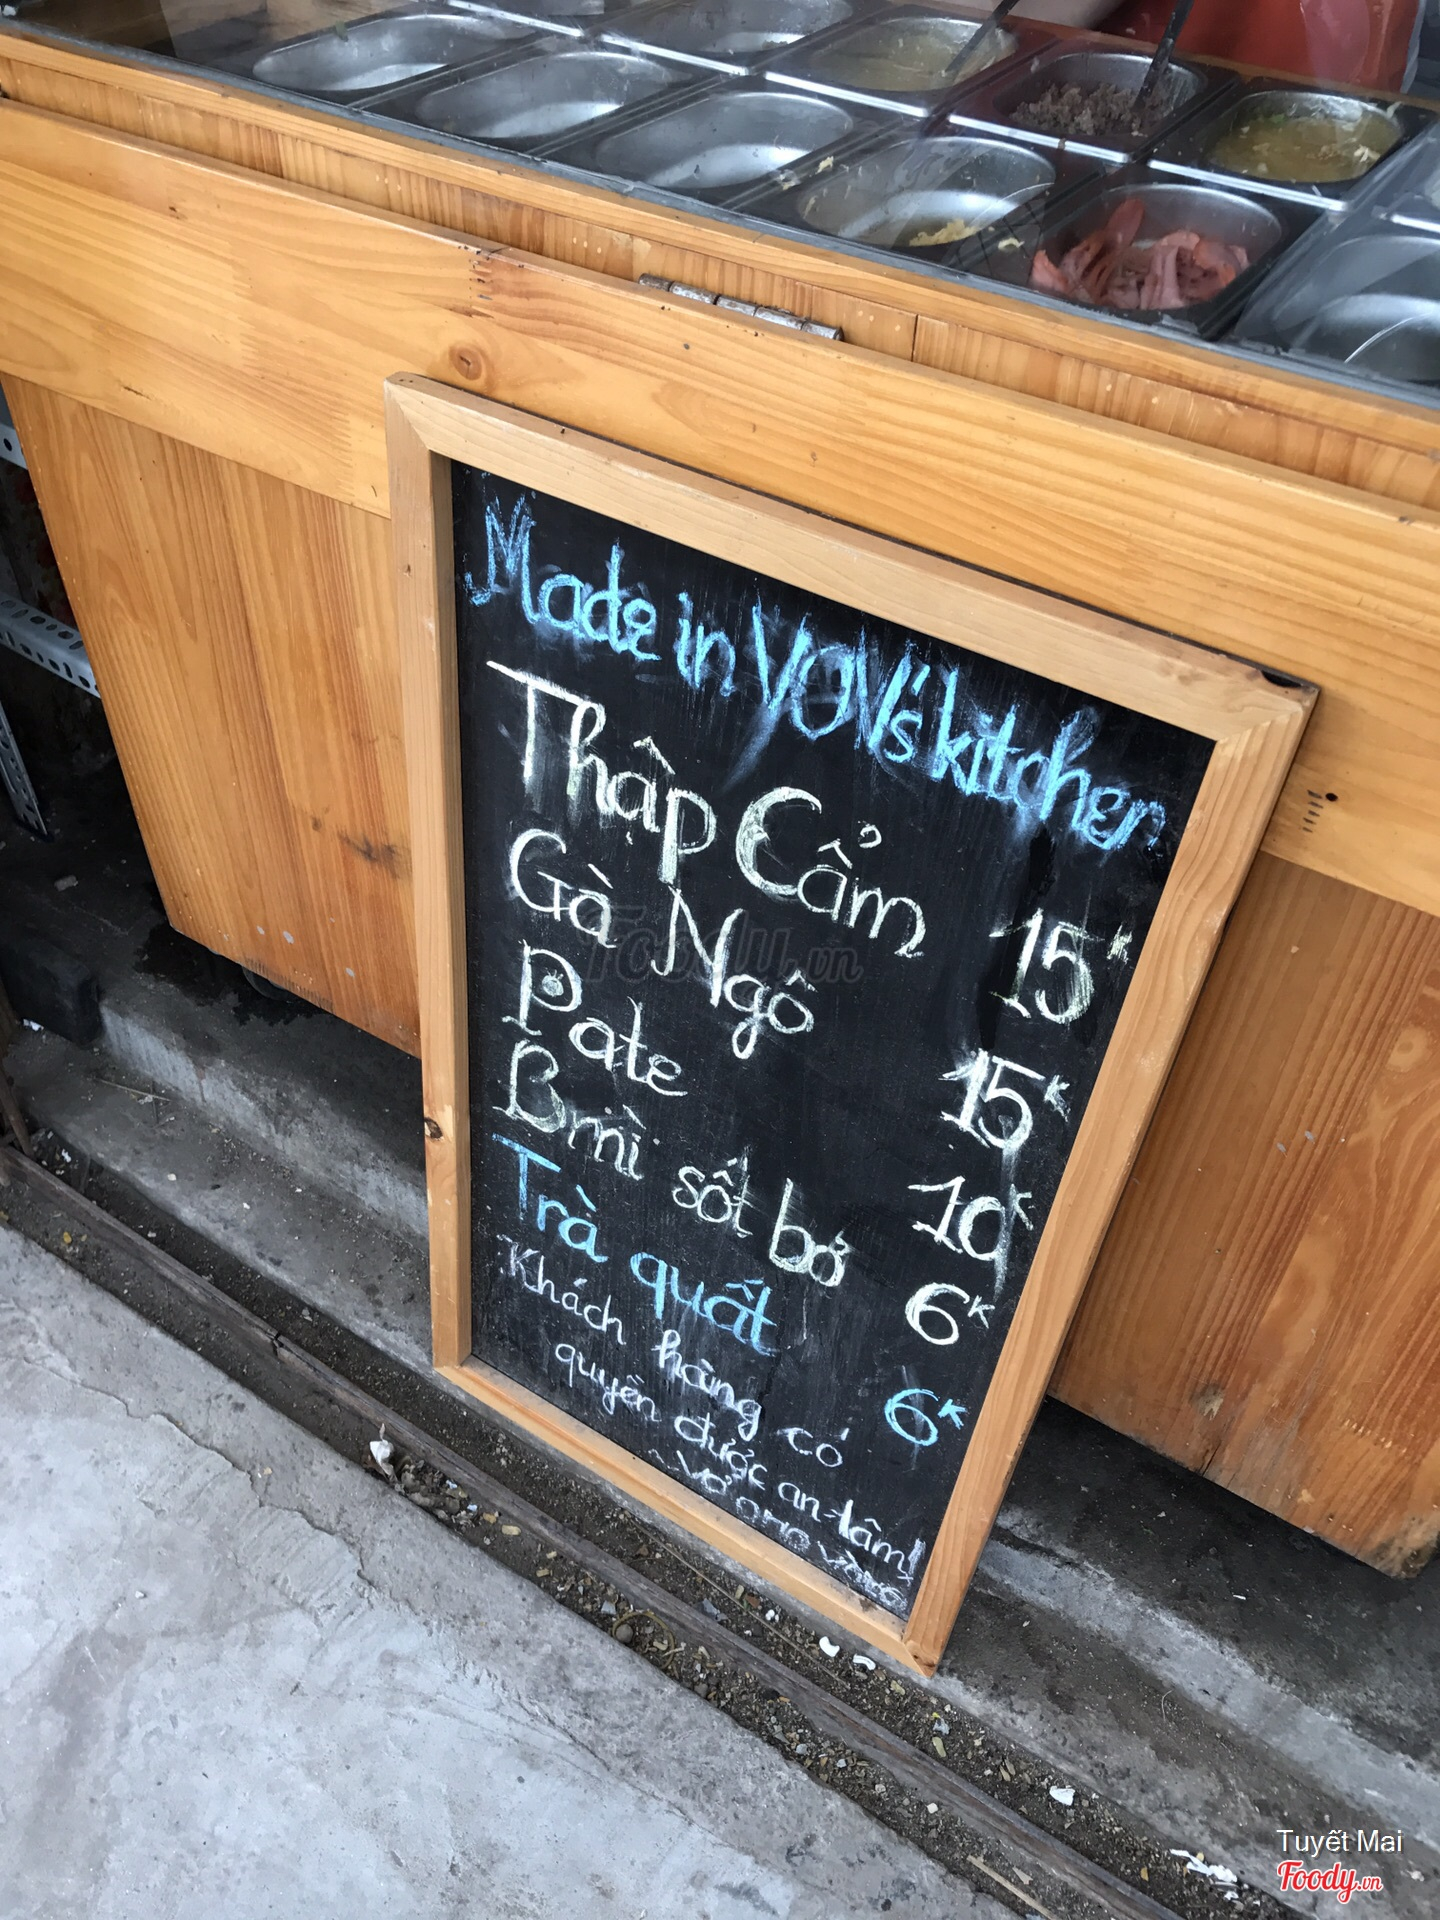 Made in VOV's kitchen
Thập Cẩm 15K
Gà Ngô 15K
Pate 10K
Bmì sốt bơ 6K
Trà quất 6K
Khách hàng có
quyền được an tâm!
Foody.vn
Tuyết Mai
Foody.vn